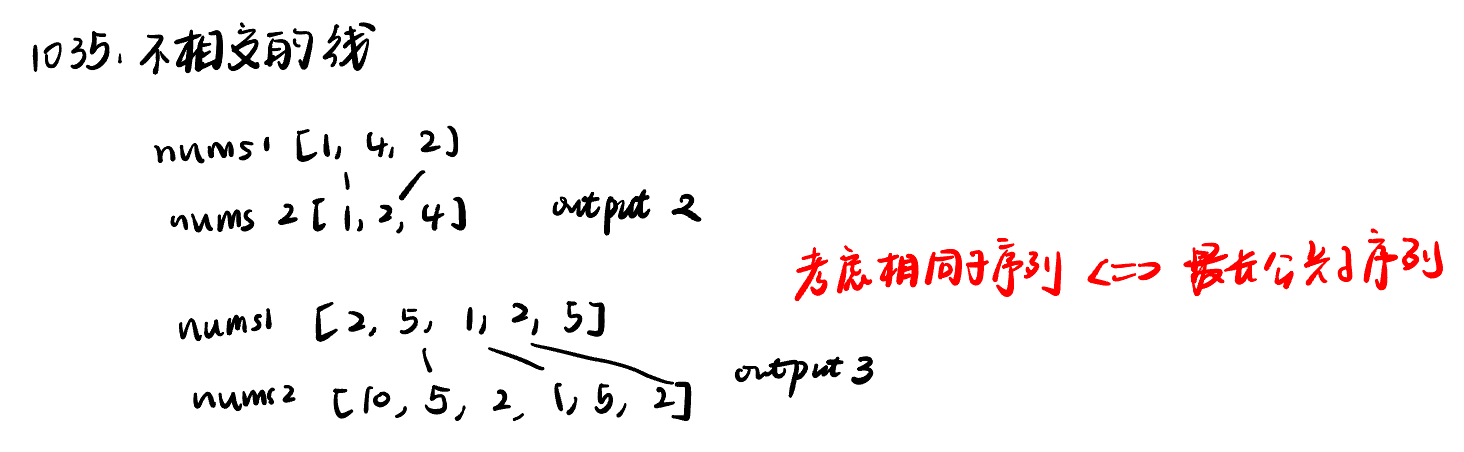 1035. 不相交的线
nums1 [1, 4, 2]
nums 2 [1, 2, 4] output 2
考虑相同子序列 <=> 最长公共子序列
nums1 [2, 5, 1, 2, 5]
output 3
nums2 [10, 5, 2, 1, 5, 2]